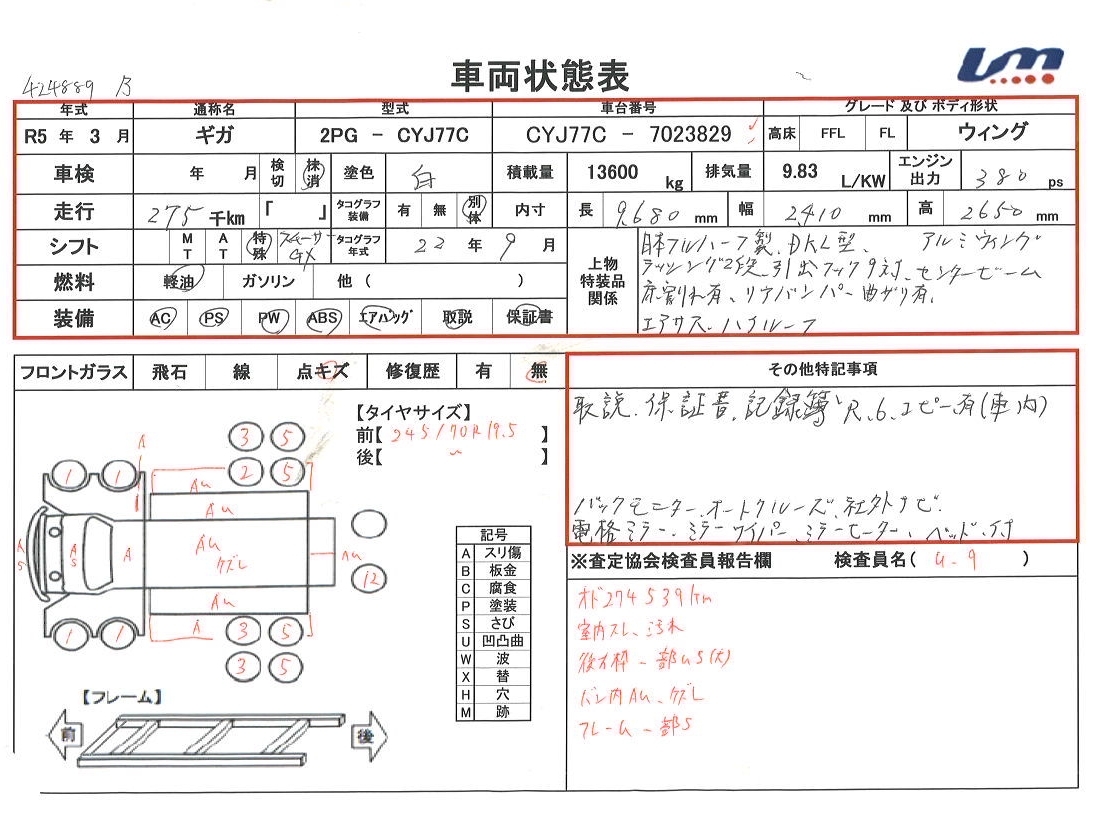 車両状態表
424889 B
年式 通称名 型式 車台番号 グレード 及び ボディ形状
R5 年 3 月 ギガ 2PG - CYJ77C CYJ77C - 7023829 高床 FFL FL ウィング
車検 年 月 検切 抹消 塗色 白 積載量 13600 kg 排気量 9.83 L/KW エンジン出力 380 ps
走行 275 千km 「 」 タコグラフ装備 有 無 別体 内寸 長 9680 mm 幅 2410 mm 高 2650 mm
シフト MT AT 特殊 スムーサーGX タコグラフ年式 22 年 9 月
燃料 軽油 ガソリン 他 ( )
装備 AC PS PW ABS エアバッグ 取説 保証書
上物特装品関係
日本フルハーフ製、DKL型、 アルミウィング
ラッシング2段、引出フック9対、センタービーム
床割れ有、リアバンパー曲がり有、
エアサス、ハイルーフ
フロントガラス 飛石 線 点キズ 修復歴 有 無
その他特記事項
取説、保証書、記録簿、R.6.コピー有(車内)
バックモニター、オートクルーズ、社外ナビ、
電格ミラー、ミラーワイパー、ミラーヒーター、ベッド、付
【タイヤサイズ】
前【 245/70R19.5 】
後【 〃 】
3 5
2 5
A
1 1
AU
AU
AS A AU AU
クズレ
12
AU
A
1 1
3 5
3 5
記号
A スリ傷
B 板金
C 腐食
P 塗装
S さび
U 凹凸曲
W 波
X 替
H 穴
M 跡
【フレーム】
前 後
※査定協会検査員報告欄 検査員名( U-9 )
オド274539km
室内スレ、汚れ
後方枠一部US(大)
バン内AU、クズレ
フレーム一部S